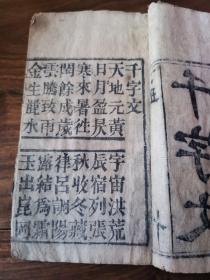 千字文
天地元黃 宇宙洪荒
日月盈昃 辰宿列張
寒來暑徃 秋收冬藏
閏餘成歲 律呂調陽
雲騰致雨 露結爲霜
金生麗水 玉出崑岡
千字文